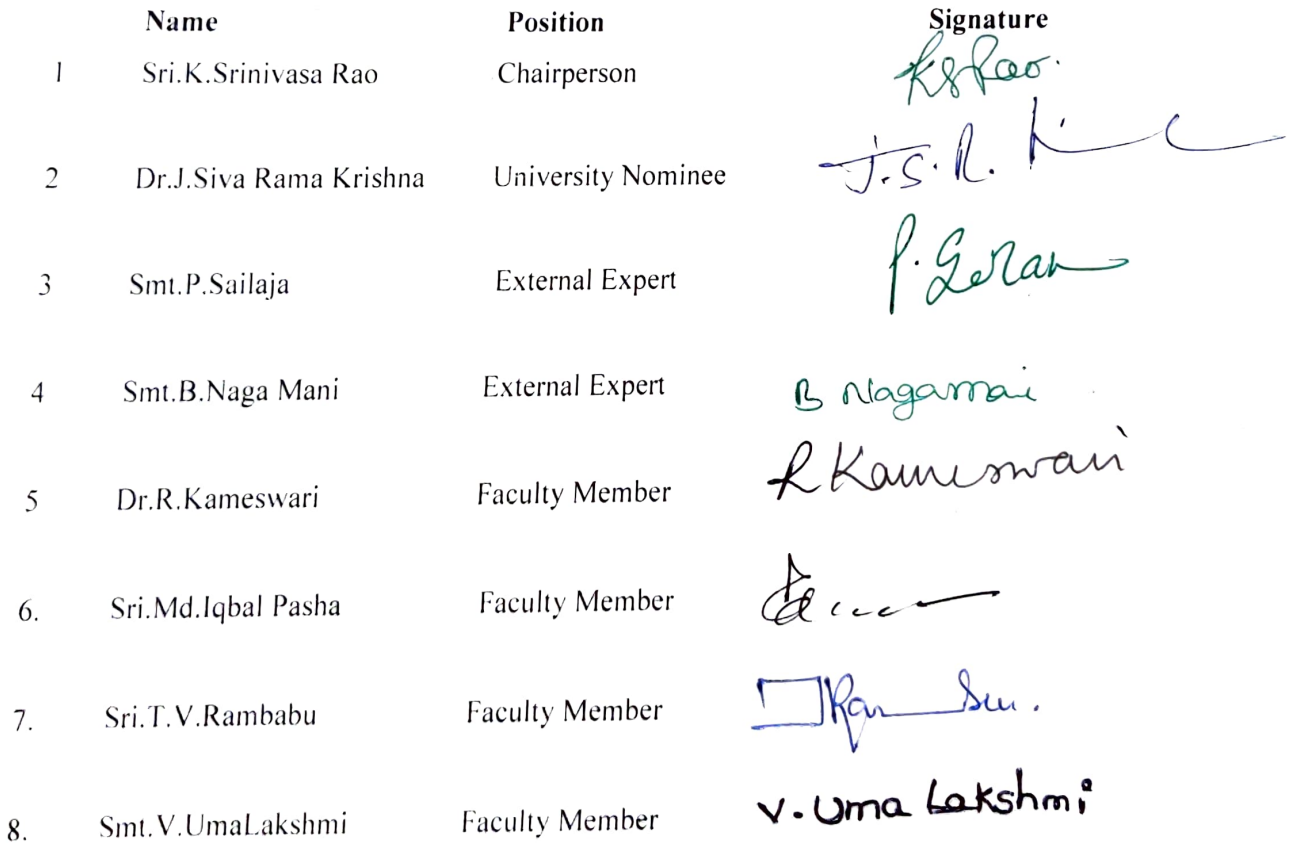 Name Position Signature
1 Sri.K.Srinivasa Rao Chairperson KSRao.
2 Dr.J.Siva Rama Krishna University Nominee J.S.R.
3 Smt.P.Sailaja External Expert P.
4 Smt.B.Naga Mani External Expert B Nagamai
5 Dr.R.Kameswari Faculty Member R Kameswari
6. Sri.Md.Iqbal Pasha Faculty Member
7. Sri.T.V.Rambabu Faculty Member
8. Smt.V.UmaLakshmi Faculty Member V. Uma Lakshmi